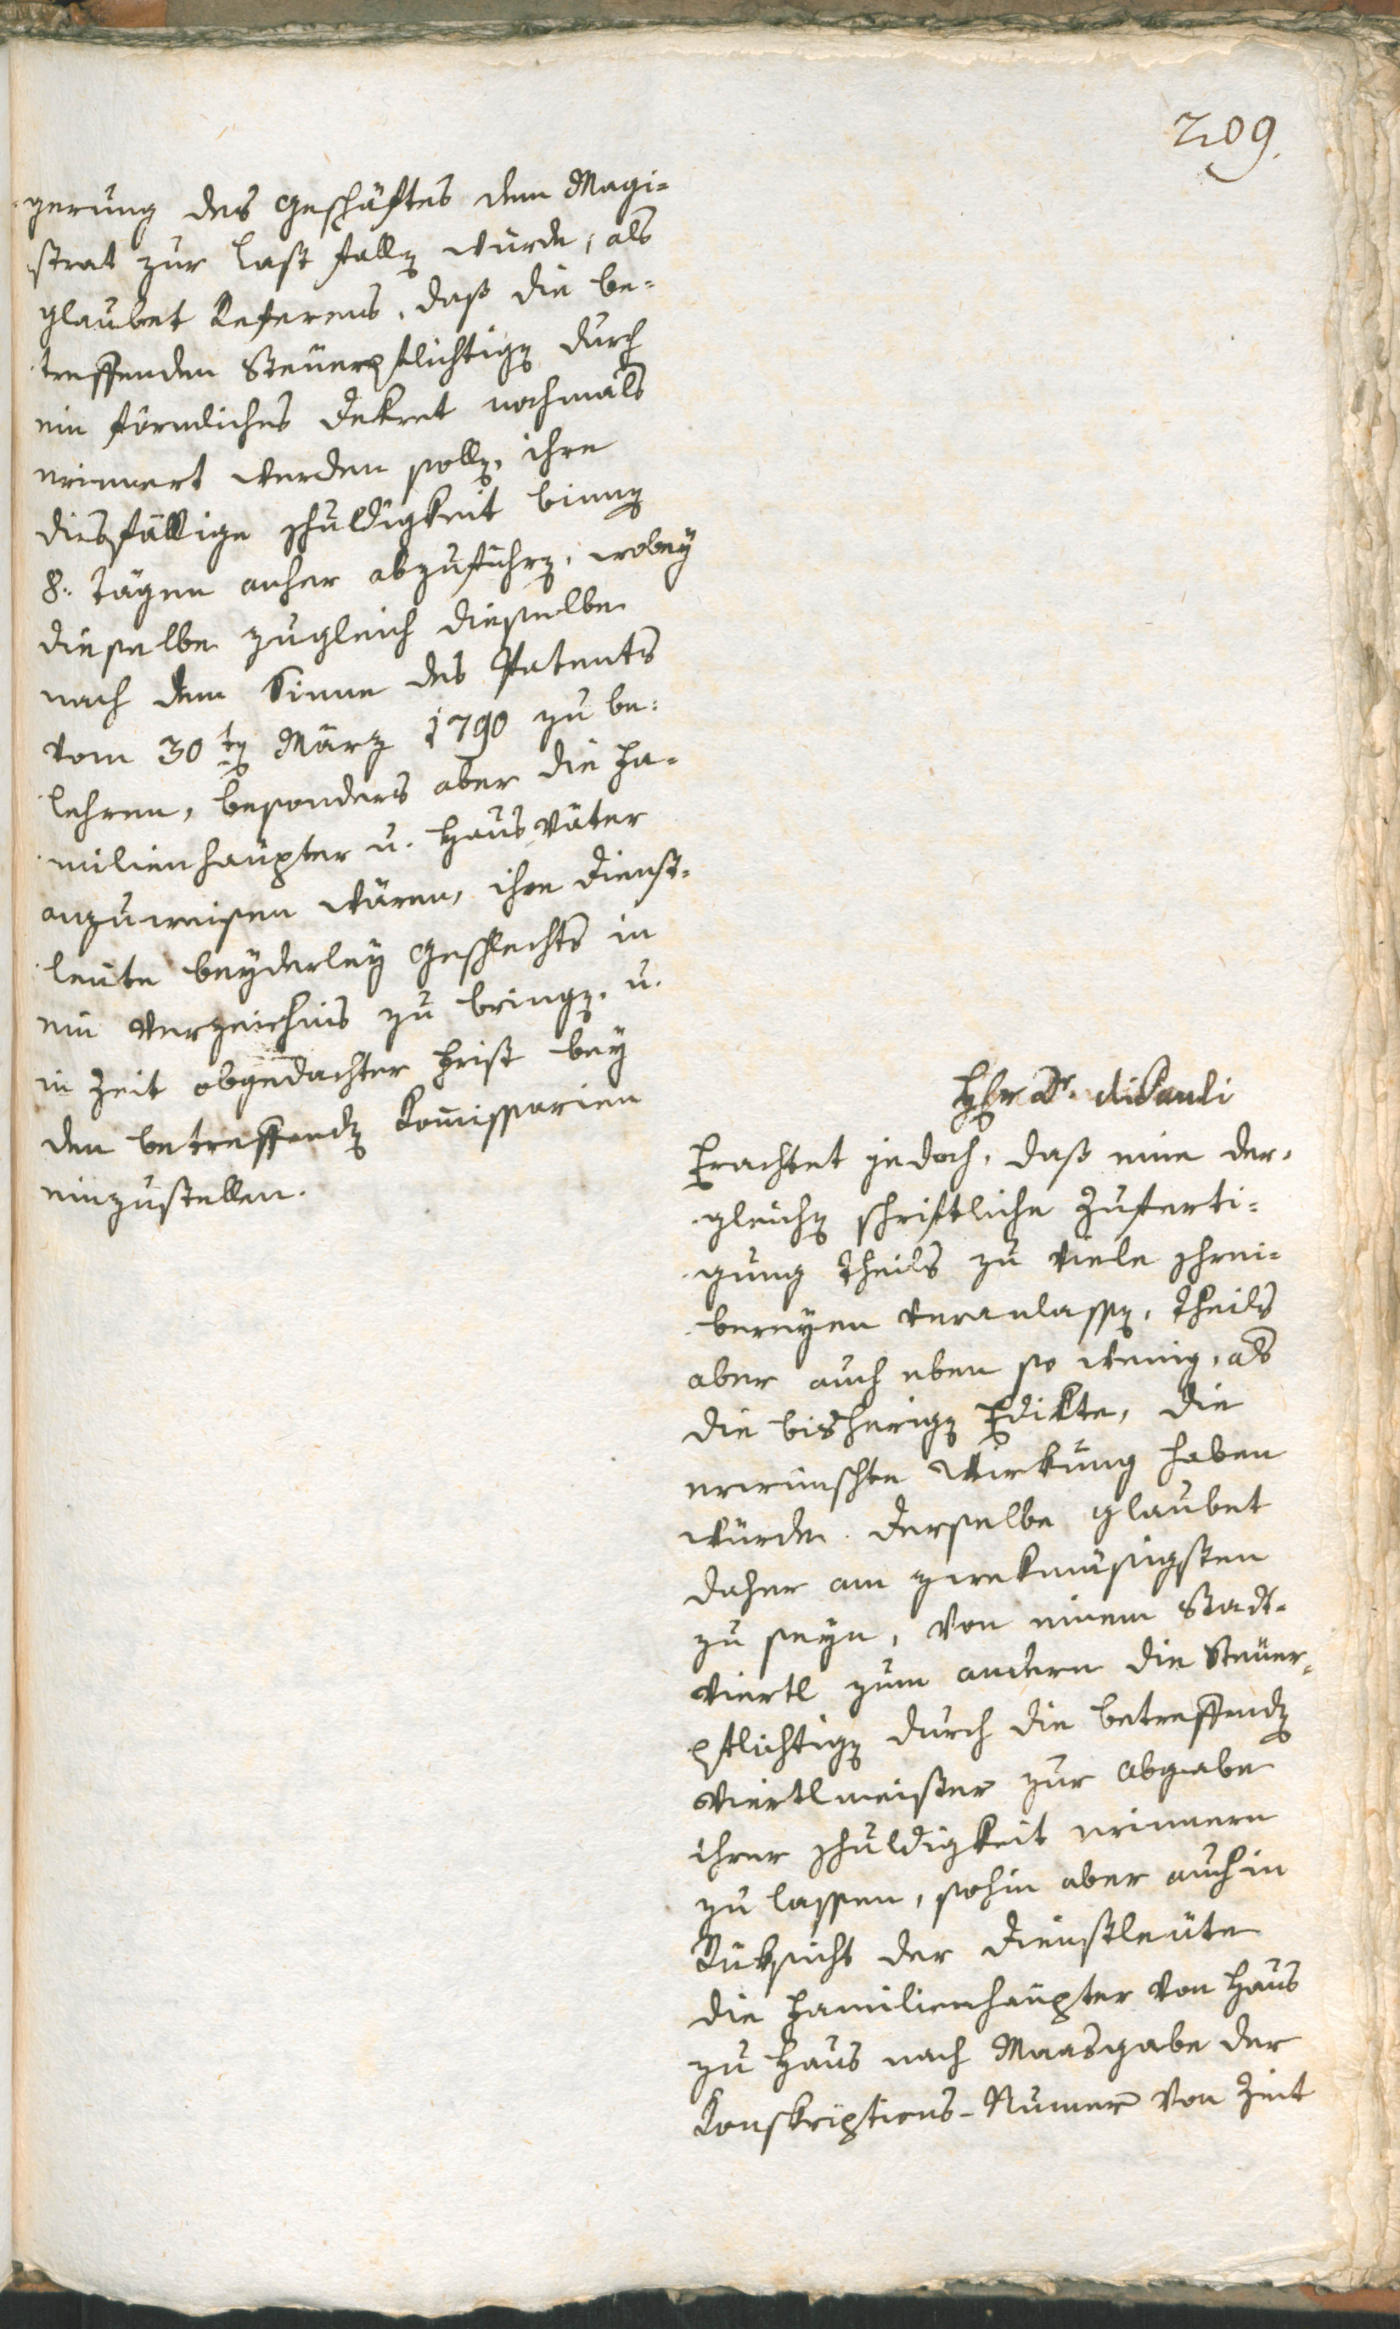 209.
gerung des Geschäftes dem Magi-
strat zur Last fallen würde, als
glaubet Referens, daß die be-
treffenden Steuerpflichtigen durch
ein förmliches Dekret nochmals
erinnert werden sollen, ihre
diesfällige Schuldigkeit binnen
8. Tägen anher abzuführen, wobey
dieselbe zugleich dieselben
nach dem Sinne des Patents
vom 30ten März 1790 zu be-
lehren, besonders aber die Fa-
milienhäupter u. Hausväter
anzuweisen wären, ihre Dienst-
leute beyderley Geschlechts in
ein Verzeichnis zu bringen, u.
in Zeit obgedachter Frist bey
den betreffenden Kommissarien
einzustellen.
Herr Dr. diPauli
Erachtet jedoch, daß eine der-
gleichen schriftliche Zuferti-
gung theils zu viele Schrei-
bereyen veranlassen, theils
aber auch eben so wenig, als
die bisherigen Edikte, die
erwünschte Wirkung haben
würde. Derselbe glaubet
daher am zwekmäsigsten
zu seyn, von einem Stadt-
viertl zum andern die Steuer-
pflichtigen durch die betreffenden
Viertlmeister zur Abgabe
ihrer Schuldigkeit erinnern
zu lassen, sohin aber auch in
Rüksicht der Dienstleute
die Familienhäupter von Haus
zu Haus nach Maasgabe der
Konskriptions-Numer von Zeit